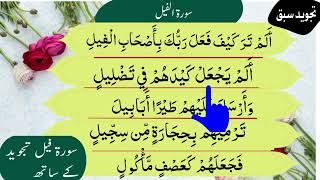 تجوید سبق
سورة الفيل
أَلَمْ تَرَ كَيْفَ فَعَلَ رَبُّكَ بِأَصْحَابِ الْفِيلِ
أَلَمْ يَجْعَلْ كَيْدَهُمْ فِي تَضْلِيلٍ
وَأَرْسَلَ عَلَيْهِمْ طَيْرًا أَبَابِيلَ
تَرْمِيهِمْ بِحِجَارَةٍ مِّن سِجِّيلٍ
فَجَعَلَهُمْ كَعَصْفٍ مَّأْكُولٍ
سورۃ فیل تجوید
کے ساتھ